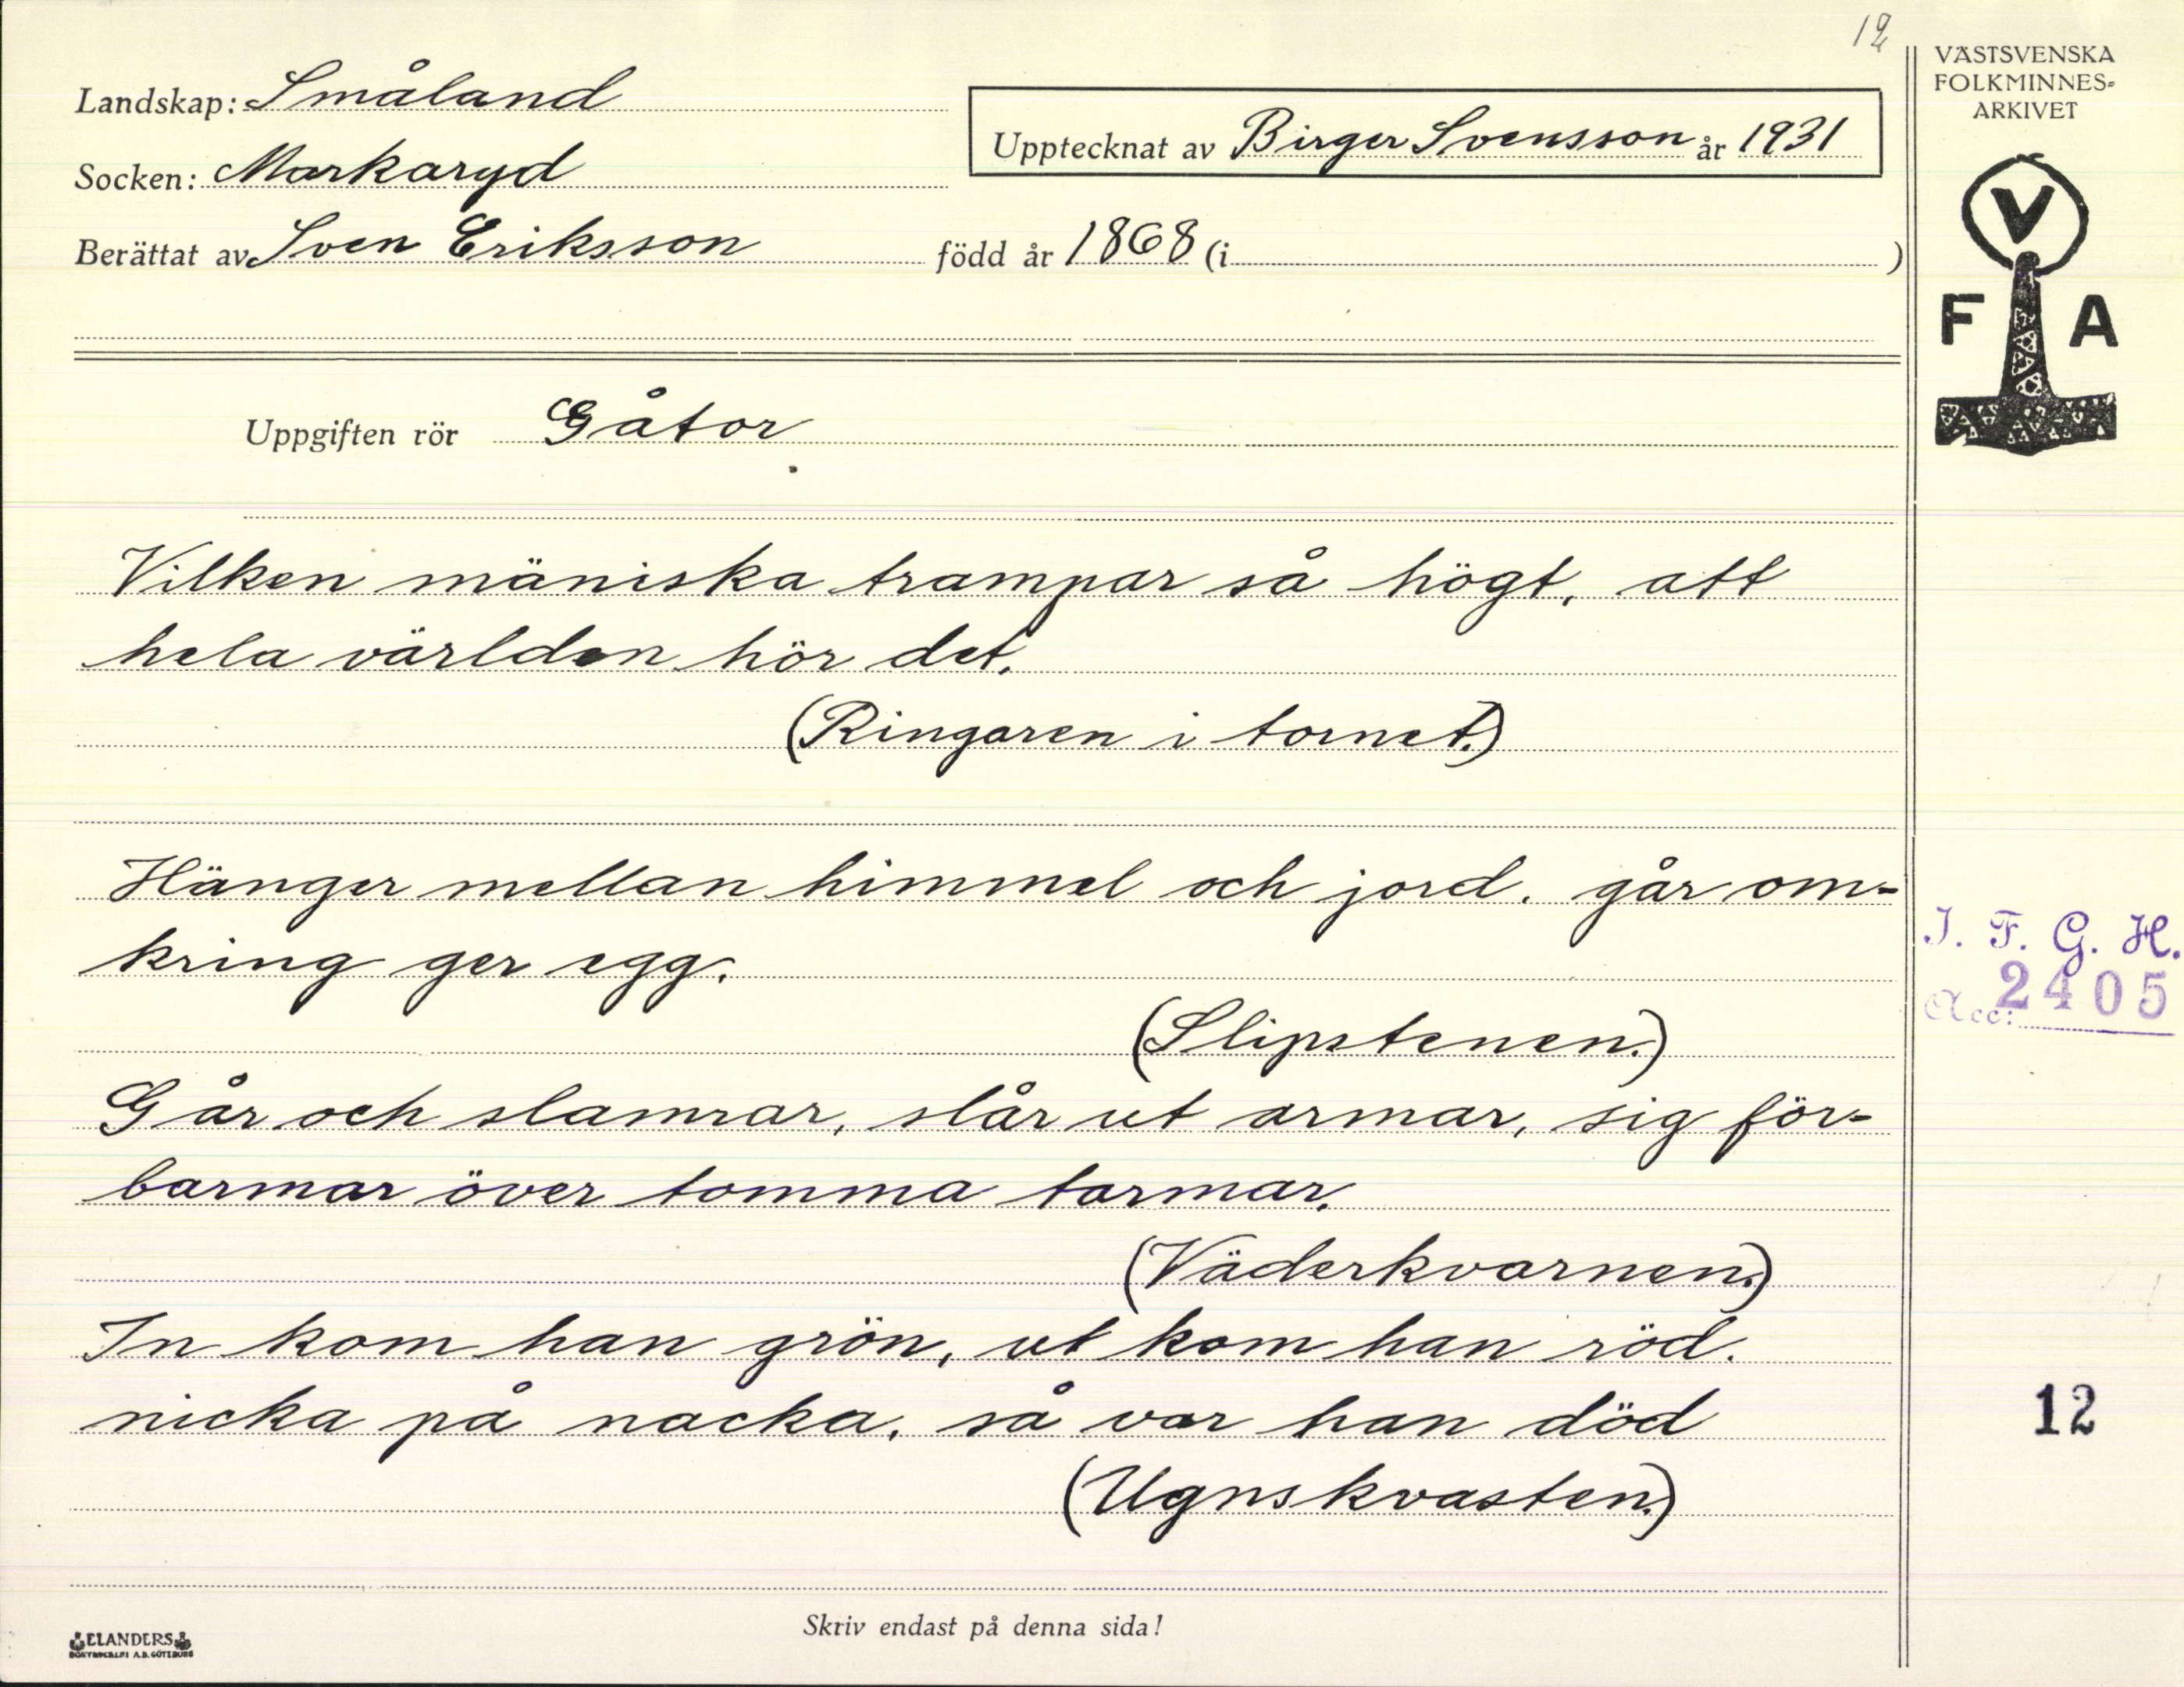 12
Landskap: Småland
Socken: Markaryd
Berättat av Sven Eriksson född år 1868 (i )
Upptecknat av Birger Svensson år 1931
VÄSTSVENSKA
FOLKMINNES-
ARKIVET
V
F A
Uppgiften rör Gåtor
Vilken mäniska trampar så högt, att
hela världen hör det.
(Ringaren i tornet.)
Hänger mellan himmel och jord. går om-
kring ger egg.
(Slipstenen.)
Går och slamrar, slår ut armar, sig för-
barmar över tomma tarmar.
(Väderkvarnen.)
In kom han grön, ut kom han röd.
nicka på nacka, så var han död
(Ugnskvasten.)
I. F. G. H.
Acc: 2405
12
Skriv endast på denna sida!
ELANDERS
BOKTRYCKERI A.B. GÖTEBORG